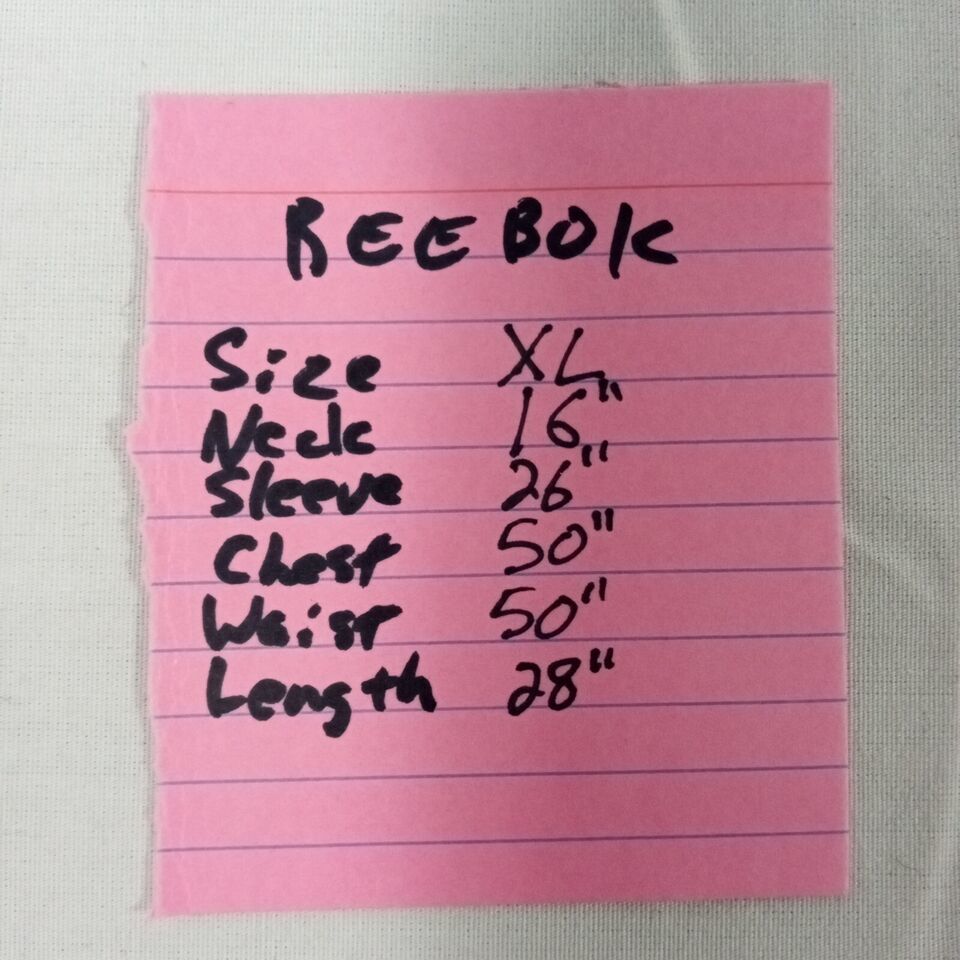 REEBOK
Size XL
Neck 16"
Sleeve 26"
Chest 50"
Waist 50"
Length 28"